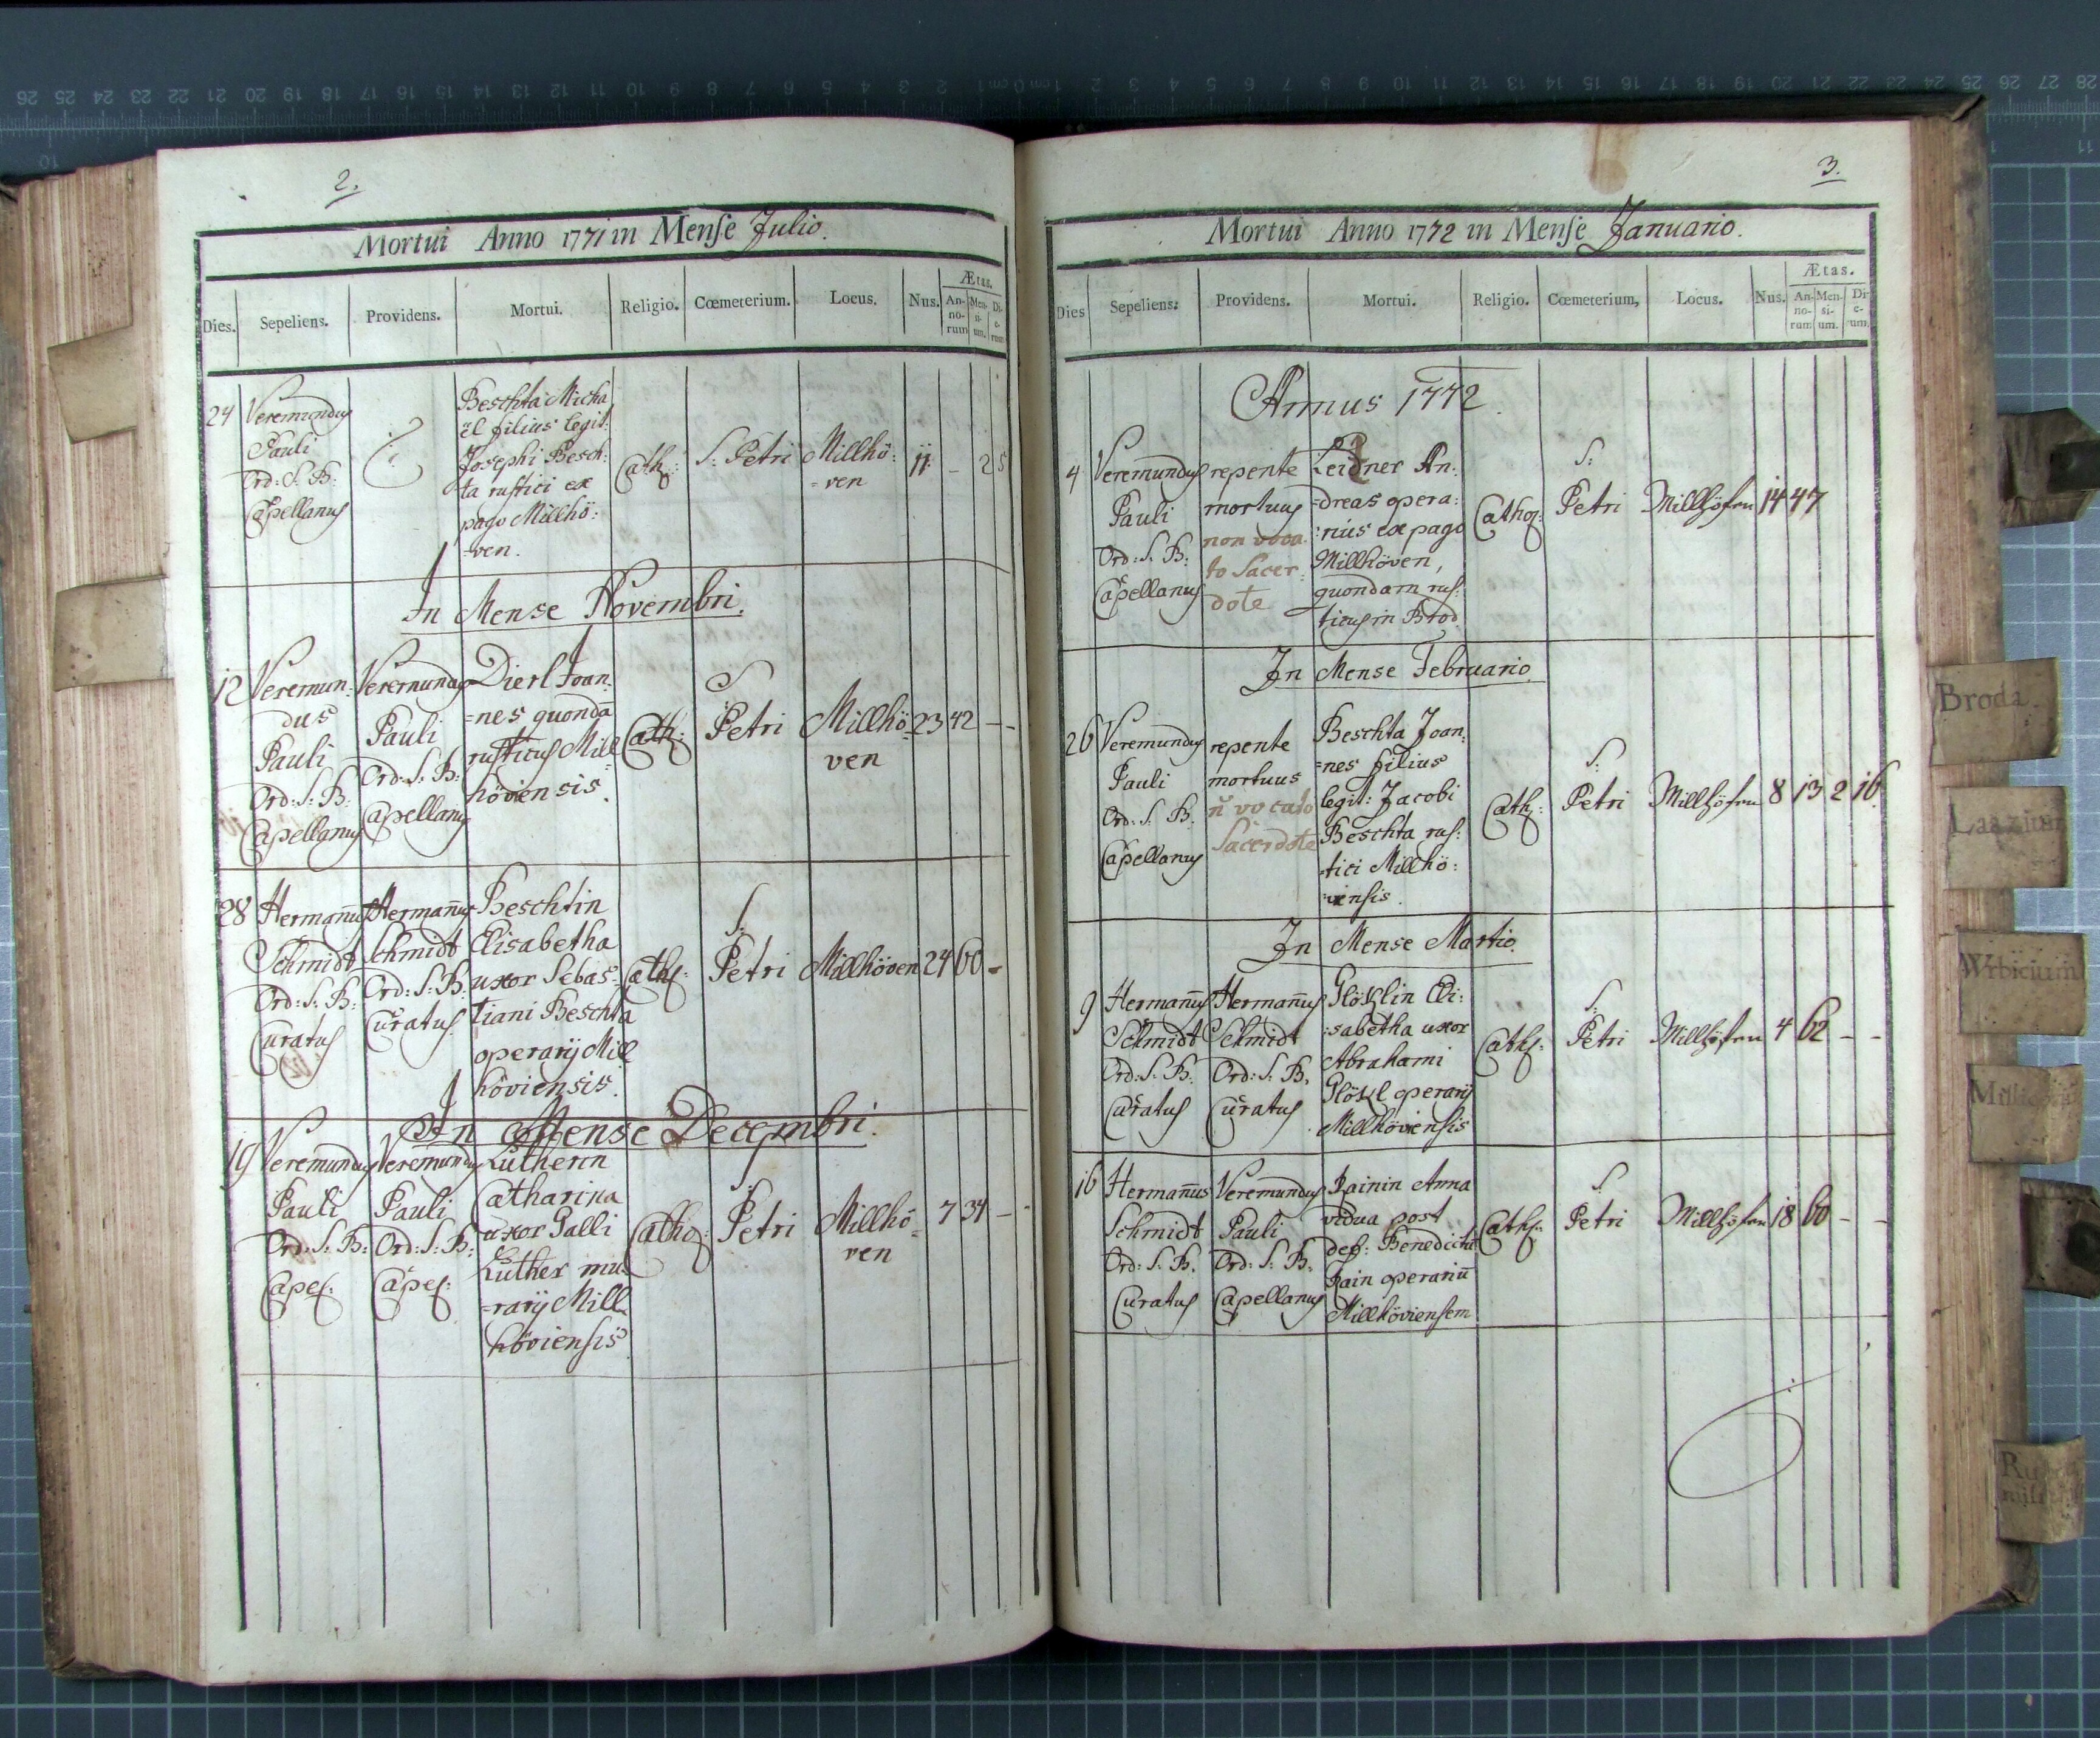 2.
Mortui Anno 1771 in Mense Julio.
Dies. Sepeliens. Providens. Mortui. Religio. Cœmeterium. Locus. Nus. Ætas.
An-no-rum Men-si-um. Di-e-rum
24 Veremundus
Pauli
Ord: S: B:
Capellanus
Beschta Micha
ël filius legit:
Josephi Besch:
ta rustici ex
pago Millhö:
=ven.
Cath: S: Petri Millhö:
=ven 11 – 2 5
In Mense Novembri.
12 Veremun:
dus
Pauli
Ord: S: B:
Capellanus
Veremundus
Pauli
Ord: S: B:
Capellanus
Dierl Joan:
=nes quondā
rusticus Mill
höviensis.
Cath: S
Petri Millhö
ven 23 42 – –
28 Hermanūs
Schmidt
Ord: S: B:
Curatus
Hermanūs
Schmidt
Ord: S: B:
Curatus
Beschtin
Elisabetha
uxor Sebas=
tiani Beschta
operarij Mill
höviensis.
Cath: S:
Petri Millhöven 24 60 –
In Mense Decembri.
19 Veremundus
Pauli
Ord: S: B:
Capel:
Veremundus
Pauli
Ord: S: B:
Capel:
Lutherin
Catharina
uxor Galli
Luther mu
=rarij Mill
höviensis
Cathol: S:
Petri Millhö=
ven 7 34 – –
3.
Mortui Anno 1772 in Mense Januario.
Dies Sepeliens: Providens. Mortui. Religio. Cœmeterium, Locus. Nus. Ætas.
An-no-rum Men-si-um. Di-e-um.
Annus 1772.
4 Veremundus
Pauli
Ord: S: B:
Capellanus
repente
mortuus
non voca
to Sacer:
dote
Leidner An:
=dreas opera:
:rius ex pago
Millhöven,
quondam rus:
ticus in Brod.
Cathol: S:
Petri Millhöfen 14 47
In Mense Februario.
26 Veremundus
Pauli
Ord: S: B.
Capellanus
repente
mortuus
n̄ vocato
Sacerdote
Beschta Joan:
=nes filius
legit: Jacobi
Beschta rus:
tici Millhö:
:viensis.
Cath: S:
Petri Millhöfen 8 13 2 16
In Mense Martio.
9 Hermanūs
Schmidt
Ord: S: B:
Curatus
Hermanūs
Schmidt
Ord: S: B.
Curatus
Eli:
:sabetha uxor
Abrahami
operarij
Millhöviensis
Cath: S:
Petri Millhöfen 4 62 – –
16 Hermanūs
Schmidt
Ord: S: B.
Curatus
Veremundus
Pauli
Ord: S: B.
Capellanus
Anna
vidua post
def: Benedictū
operariū
Millhöviensem
Cath: S:
Petri Millhöfen 18 60 – –
Broda.
Laazium
Wrbicium